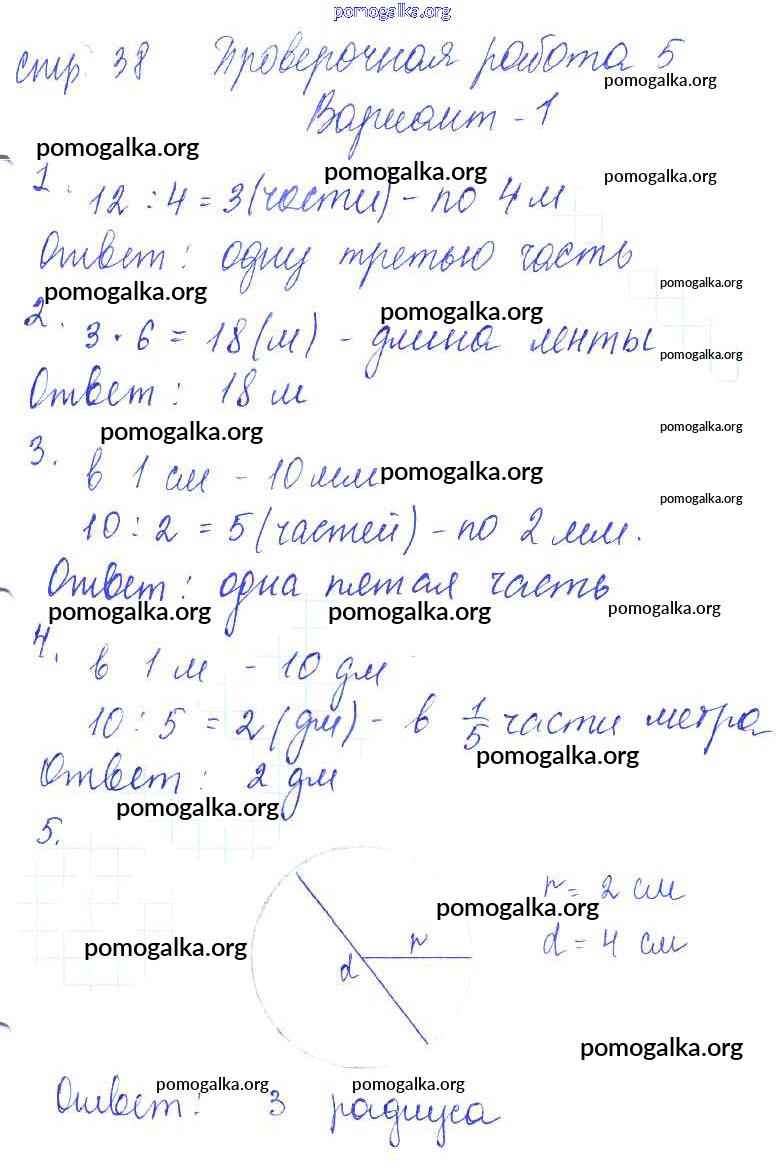 pomogalka.org
стр. 38 Проверочная работа 5
pomogalka.org
Вариант - 1
pomogalka.org
pomogalka.org pomogalka.org
1. 12 : 4 = 3 (части) - по 4 м
Ответ: одну третью часть
pomogalka.org pomogalka.org
pomogalka.org
2. 3 · 6 = 18 (м) - длина ленты
pomogalka.org
Ответ: 18 м
pomogalka.org pomogalka.org
3. в 1 см - 10 мм
pomogalka.org
pomogalka.org
10 : 2 = 5 (частей) - по 2 мм.
Ответ: одна пятая часть
pomogalka.org pomogalka.org pomogalka.org
4. в 1 м - 10 дм
10 : 5 = 2 (дм) - в 1/5 части метра
pomogalka.org
Ответ: 2 дм
pomogalka.org
5.
r = 2 см
pomogalka.org
d r d = 4 см
pomogalka.org
pomogalka.org
pomogalka.org pomogalka.org
Ответ: 3 радиуса